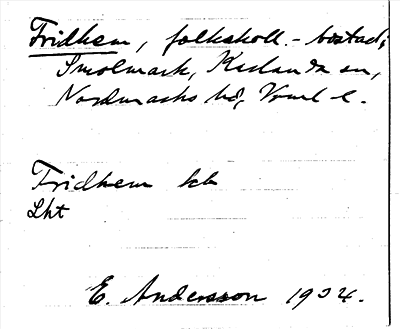 Fridhem, folkskoll.-bostad;
Smolmark, Karlanda sn,
Nordmarks hd, Vrml l.
Fridhem kb
Lht
E. Andersson 1934.